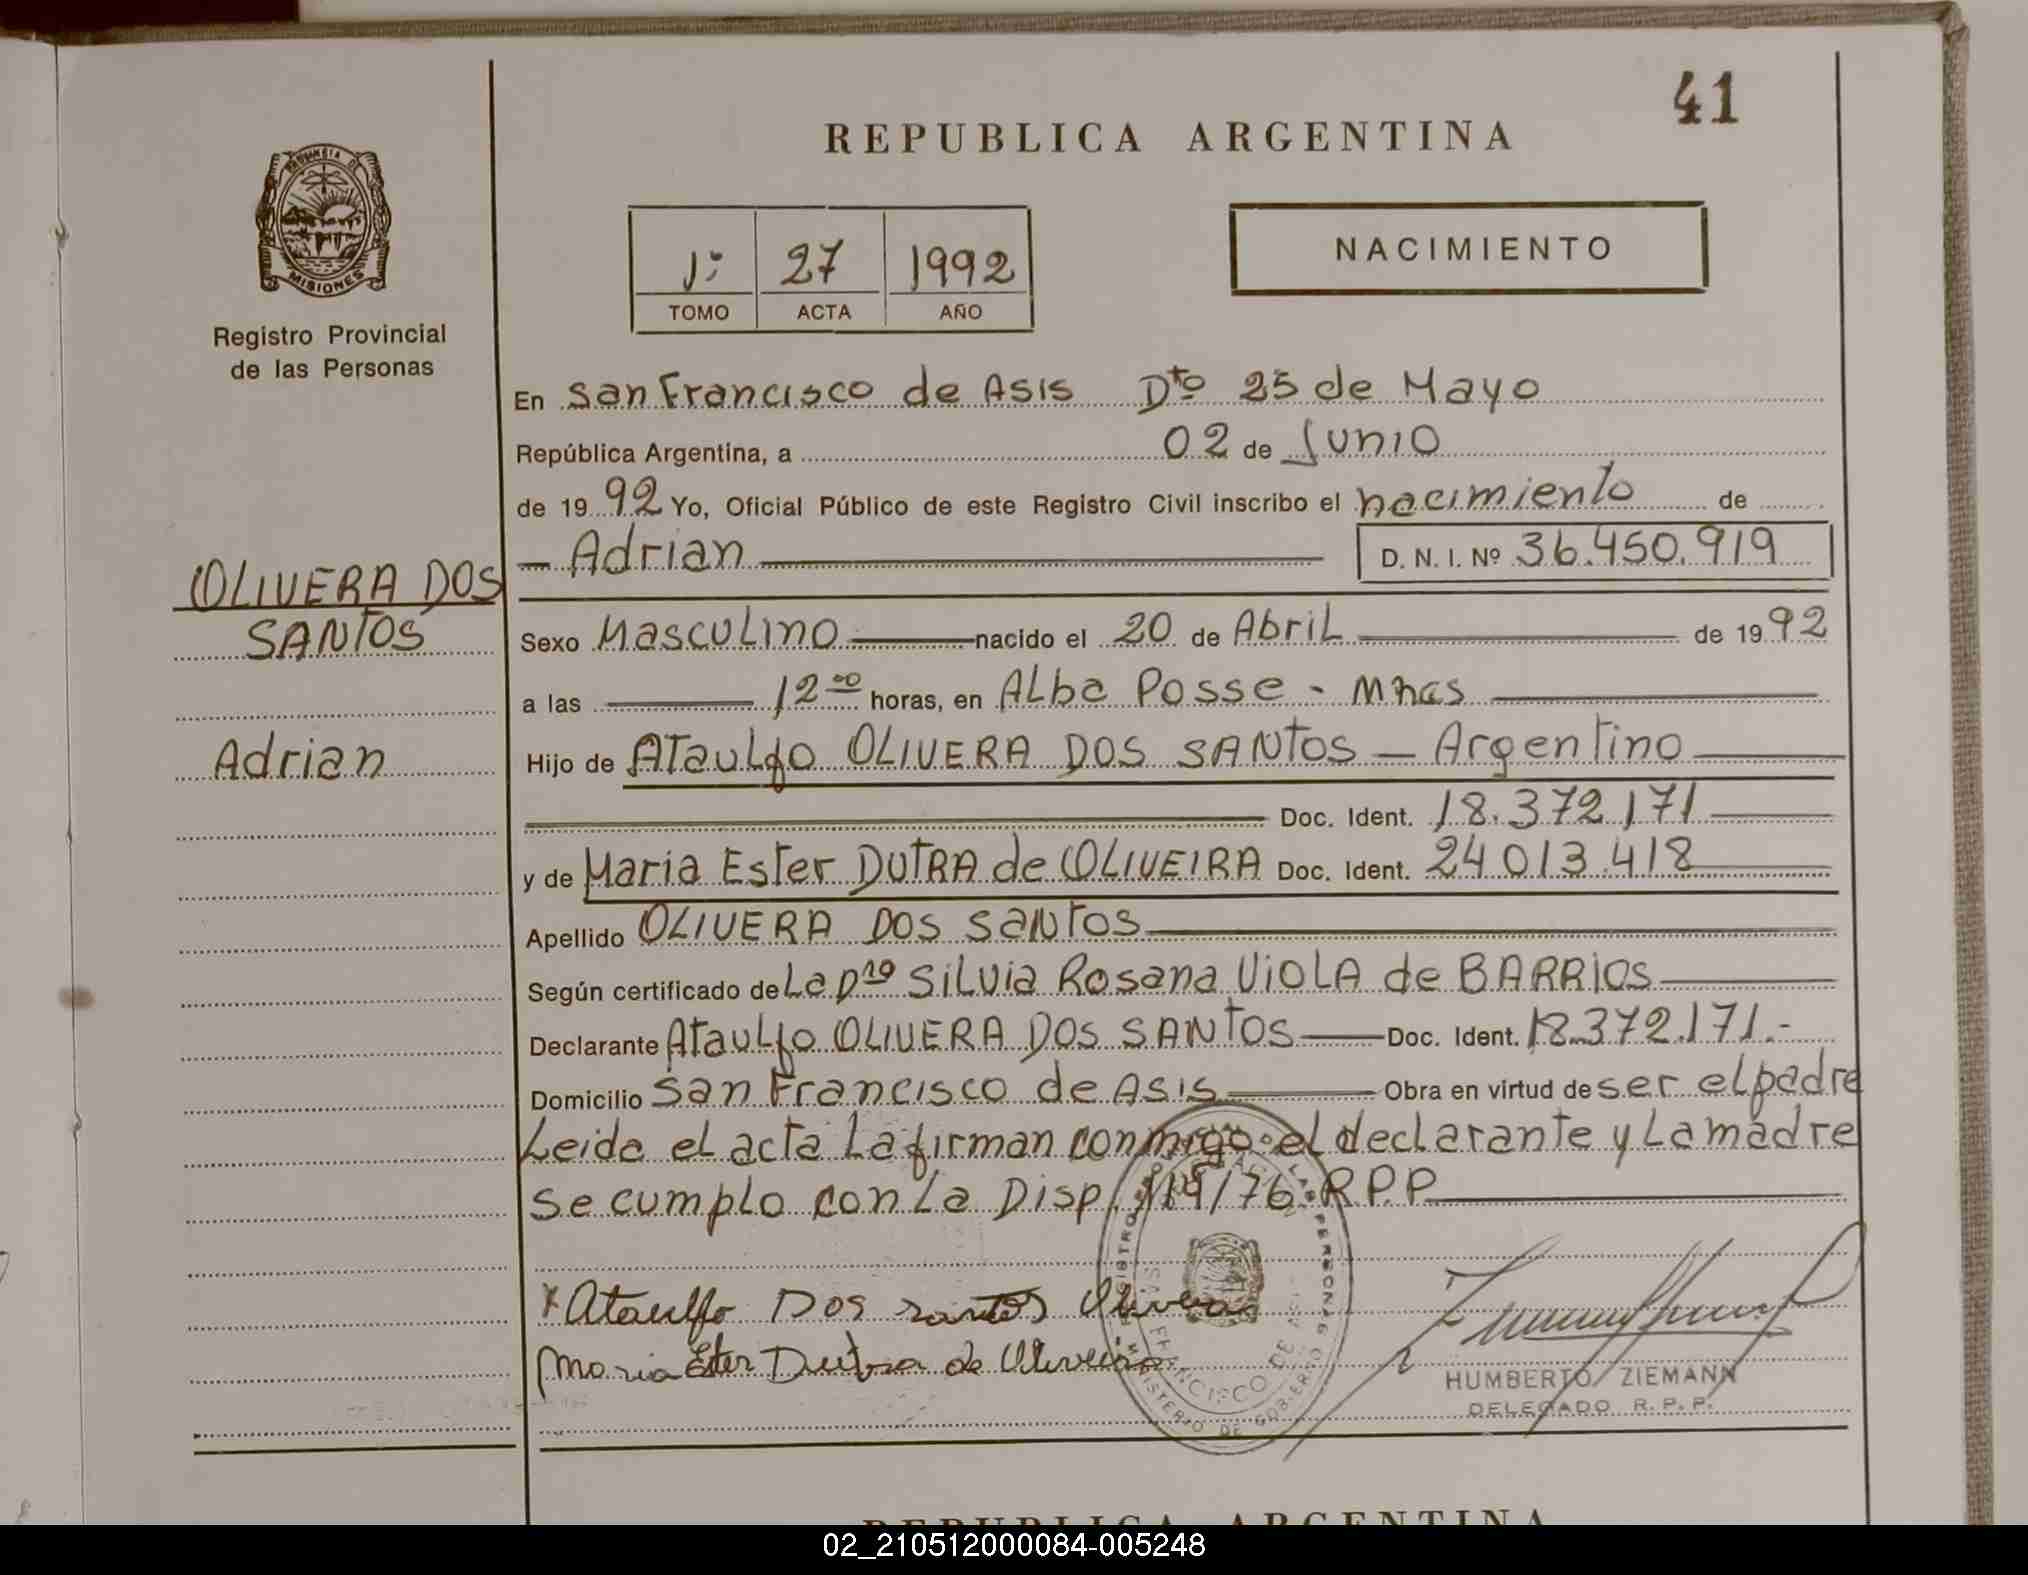 41
REPUBLICA ARGENTINA
PROVINCIA DE
MISIONES
Registro Provincial
de las Personas
1º 27 1992
TOMO ACTA AÑO
NACIMIENTO
En San Francisco de Asis Dto 25 de Mayo
República Argentina, a 02 de Junio
de 19 92 Yo, Oficial Público de este Registro Civil inscribo el nacimiento de
— Adrian — D. N. I. Nº 36.450.919
OLIVERA DOS
SANTOS
Adrian
Sexo Masculino — nacido el 20 de Abril — de 19 92
a las — 12 00 horas, en Alba Posse - Mnes —
Hijo de Ataulfo OLIVERA DOS SANTOS — Argentino —
— Doc. Ident. 18.372.171 —
y de Maria Ester DUTRA de OLIVEIRA Doc. Ident. 24 013.418
Apellido OLIVERA DOS SANTOS —
Según certificado de La Dra Silvia Rosana VIOLA de BARRIOS —
Declarante Ataulfo OLIVERA DOS SANTOS — Doc. Ident. 18.372.171.-
Domicilio San Francisco de Asis — Obra en virtud de ser el padre
Leida el acta La firman conmigo el declarante y La madre
se cumplo con La Disp. /76 R.P.P —
x Ataulfo Dos santos Olivera
Maria Ester Dutra de Oliveira
HUMBERTO ZIEMANN
DELEGADO R. P. P.
MINISTERIO DE GOBIERNO
FRANCISCO DE ASIS
REPUBLICA ARGENTINA
02_210512000084-005248